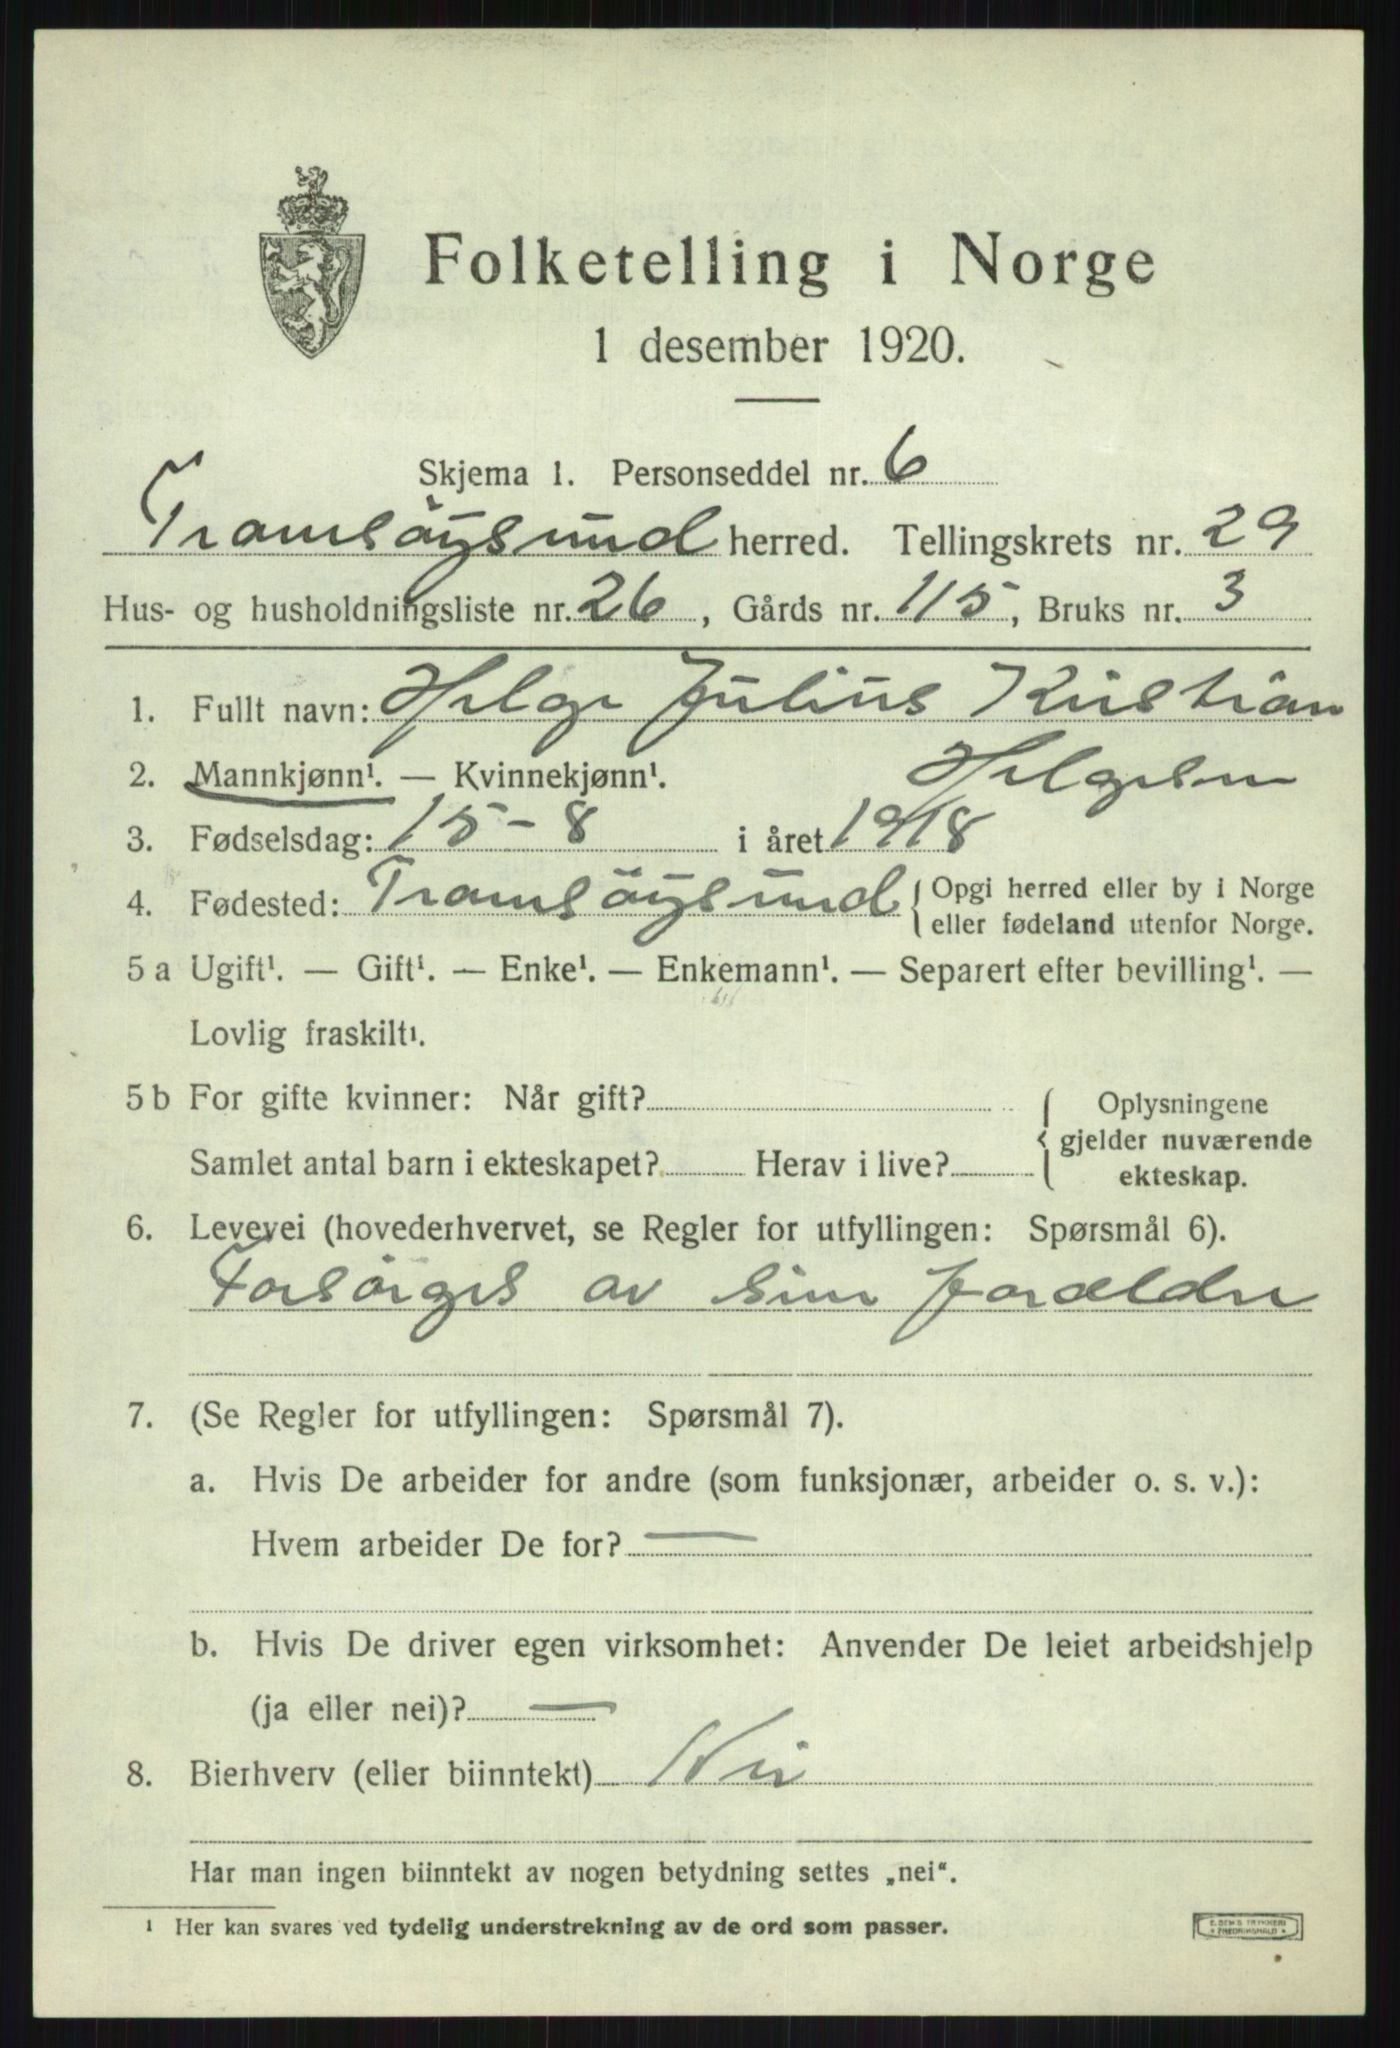 Folketelling i Norge
1 desember 1920.
Skjema 1. Personseddel nr. 6
Tromsöysund herred. Tellingskrets nr. 29
Hus- og husholdningsliste nr. 26, Gårds nr. 115, Bruks nr. 3
1. Fullt navn: Helge Julius Kristian
Helgesen
2. Mannkjønn¹. — Kvinnekjønn¹.
3. Fødselsdag: 15-8 i året 1918
4. Fødested: Tromsöysund { Opgi herred eller by i Norge
eller fødeland utenfor Norge.
5 a Ugift¹. — Gift¹. — Enke¹. — Enkemann¹. — Separert efter bevilling¹. —
Lovlig fraskilt¹.
5 b For gifte kvinner: Når gift?
Samlet antal barn i ekteskapet? Herav i live?
{ Oplysningene
gjelder nuværende
ekteskap.
6. Levevei (hovederhvervet, se Regler for utfyllingen: Spørsmål 6).
Forsörges av sine foreldre
7. (Se Regler for utfyllingen: Spørsmål 7).
a. Hvis De arbeider for andre (som funksjonær, arbeider o. s. v.):
Hvem arbeider De for? —
b. Hvis De driver egen virksomhet: Anvender De leiet arbeidshjelp
(ja eller nei)? —
8. Bierhverv (eller biinntekt) Nei
Har man ingen biinntekt av nogen betydning settes „nei“.
¹ Her kan svares ved tydelig understrekning av de ord som passer.
E. SEM'S TRYKKERI
* FREDRIKSHALD *